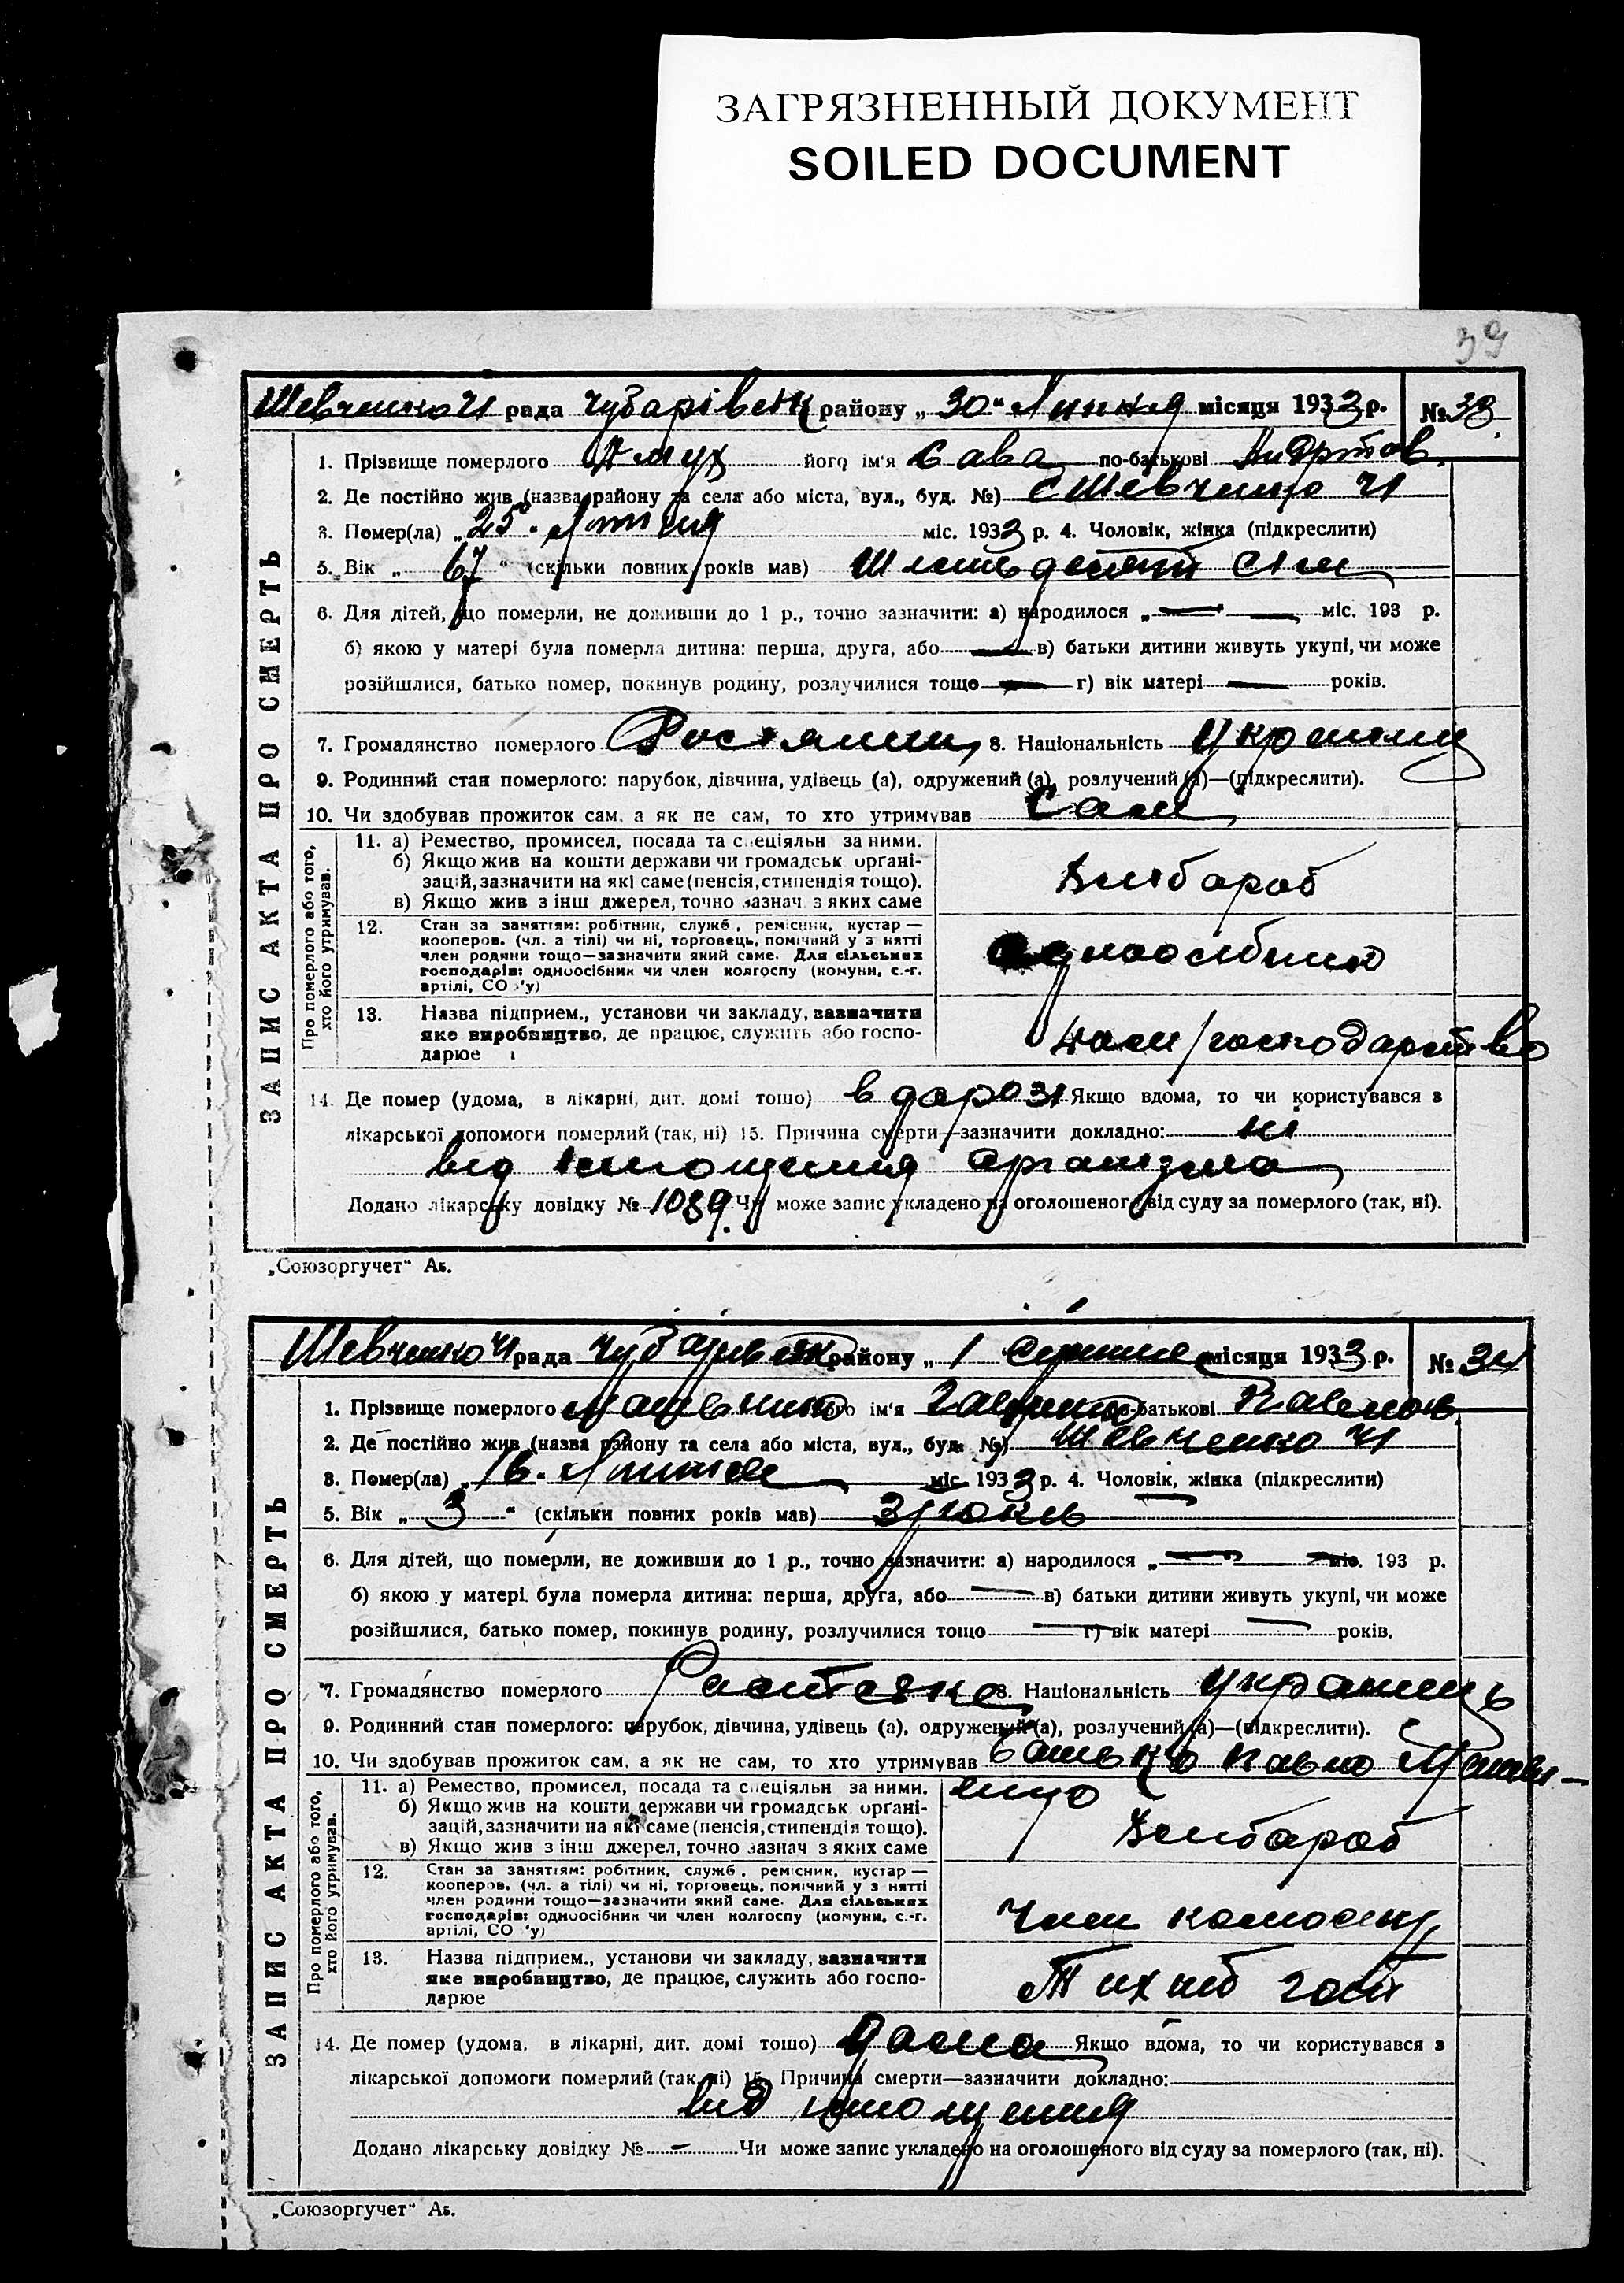 ЗАГРЯЗНЕННЫЙ ДОКУМЕНТ
SOILED DOCUMENT
39
Шевченко 41 рада Чубарівськ району „30“ Липня місяця 1933 р. № 33
1. Прізвище померлого його ім'я Сава по-батькові
2. Де постійно жив (назва району та села або міста, вул., буд. №) с Шевченко 41
3. Помер(ла) „25“ Липня міс. 1933 р. 4. Чоловік, жінка (підкреслити)
5. Вік „ 67 “ (скільки повних років мав) Шістьдесят сім
6. Для дітей, що померли, не доживши до 1 р., точно зазначити: а) народилося „ міс. 193 р.
б) якою у матері була померла дитина: перша, друга, або в) батьки дитини живуть укупі, чи може
розійшлися, батько помер, покинув родину, розлучилися тощо г) вік матері років.
7. Громадянство померлого 8. Національність
9. Родинний стан померлого: парубок, дівчина, удівець (а), одружений (а), розлучений (а)—(підкреслити).
10. Чи здобував прожиток сам, а як не сам, то хто утримував Сам
ЗАПИС АКТА ПРО СМЕРТЬ
Про померлого або того, хто його утримував.
11. а) Ремество, промисел, посада та спеціяльн за ними.
б) Якщо жив на кошти держави чи громадськ органі-
зацій, зазначити на які саме (пенсія, стипендія тощо).
в) Якщо жив з інш джерел, точно зазнач з яких саме
Хлібороб
12. Стан за заняттям: робітник, служб, ремісник, кустар —
кооперов. (чл. а тілі) чи ні, торговець, помічний у з нятті
член родини тощо—зазначити який саме. Для сільських
господарів: одноосібник чи член колгоспу (комуни, с.-г.
артілі, СО у)
одноосібник
13. Назва підприєм., установи чи закладу, зазначити
яке виробництво, де працює, служить або госпо-
дарює
господарство
14. Де помер (удома, в лікарні, дит. домі тошо) в дорозі Якщо вдома, то чи користувався з
лікарської допомоги померлий (так, ні) 15. Причина смерти—зазначити докладно: ні
від істощения організма
Додано лікарську довідку № 1089. Чи може запис укладено на оголошеного від суду за померлого (так, ні).
„Союзоргучет“ Аб.
Шевченко 41 рада Чубарівськ району „ 1 Серпня місяця 1933 р. № 34
1. Прізвище померлого його ім'я по-батькові Павлов
2. Де постійно жив (назва району та села або міста, вул., буд. №) Шевченко 41
3. Помер(ла) міс. 1933 р. 4. Чоловік, жінка (підкреслити)
5. Вік „ 3 “ (скільки повних років мав) 3 роки
6. Для дітей, що померли, не доживши до 1 р., точно зазначити: а) народилося „ міс. 193 р.
б) якою у матері була померла дитина: перша, друга, або в) батьки дитини живуть укупі, чи може
розійшлися, батько помер, покинув родину, розлучилися тощо г) вік матері років.
7. Громадянство померлого 8. Національність Украинець
9. Родинний стан померлого: парубок, дівчина, удівець (а), одружений (а), розлучений (а)—(підкреслити).
10. Чи здобував прожиток сам, а як не сам, то хто утримував батько Павло
ЗАПИС АКТА ПРО СМЕРТЬ
Про померлого або того, хто його утримував.
11. а) Ремество, промисел, посада та спеціяльн за ними.
б) Якщо жив на кошти держави чи громадськ органі-
зацій, зазначити на які саме (пенсія, стипендія тощо).
в) Якщо жив з інш джерел, точно зазнач з яких саме
Хлібороб
12. Стан за заняттям: робітник, служб, ремісник, кустар —
кооперов. (чл. а тілі) чи ні, торговець, помічний у з нятті
член родини тощо—зазначити який саме. Для сільських
господарів: одноосібник чи член колгоспу (комуни, с.-г.
артілі, СО у)
Член колгоспу
13. Назва підприєм., установи чи закладу, зазначити
яке виробництво, де працює, служить або госпо-
дарює
14. Де помер (удома, в лікарні, дит. домі тошо) Дома Якщо вдома, то чи користувався з
лікарської допомоги померлий (так, ні) 15. Причина смерти—зазначити докладно:
від істощения
Додано лікарську довідку № – Чи може запис укладено на оголошеного від суду за померлого (так, ні).
„Союзоргучет“ Аб.